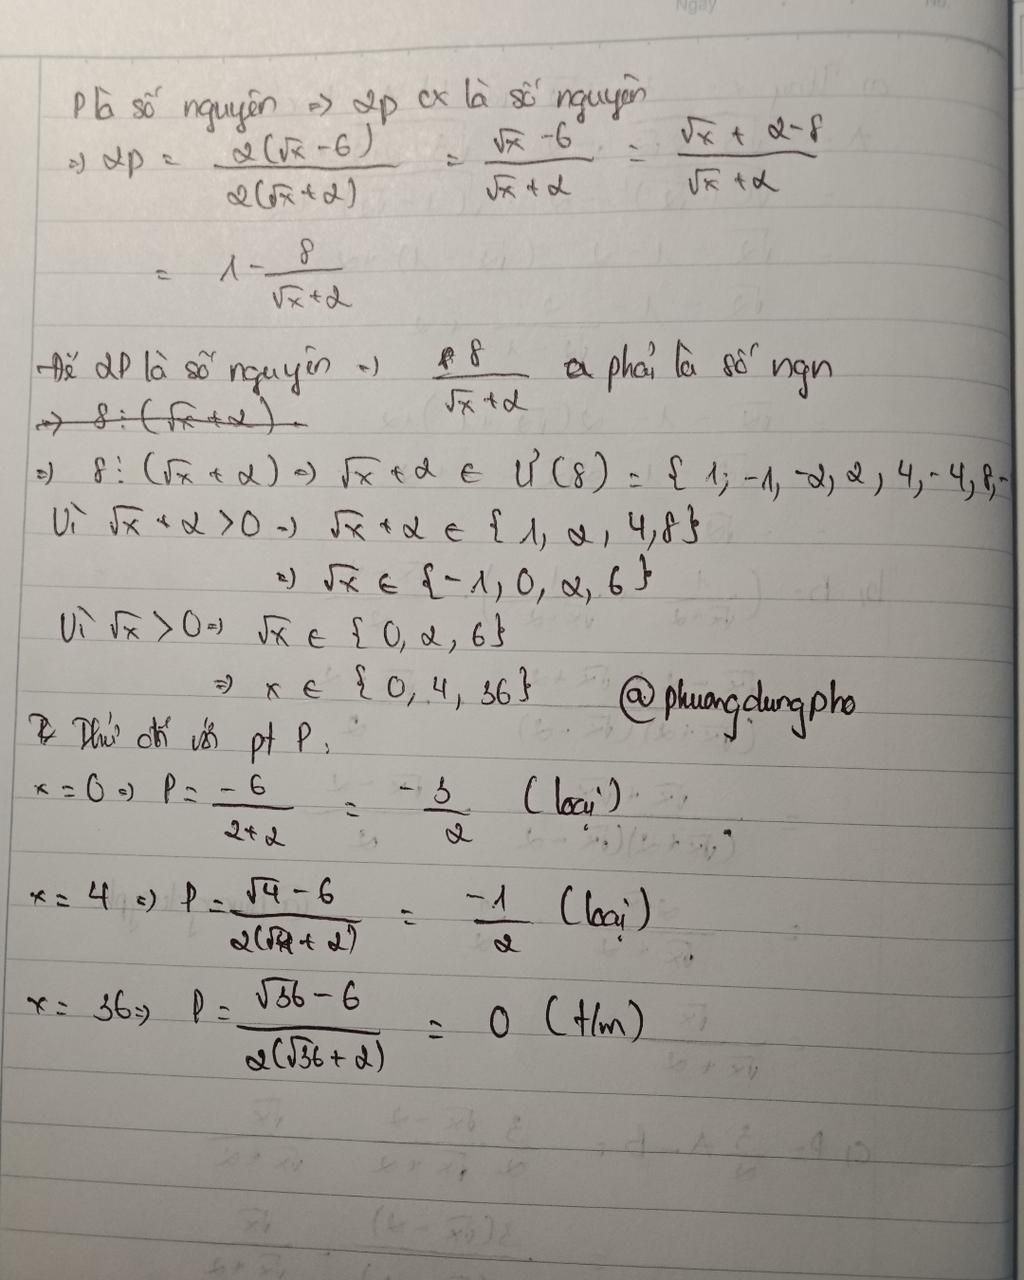 Ngày No.
P là số nguyên => 2p cx là số nguyên
=> 2p = 2(√x - 6) / 2(√x + 2) = √x - 6 / √x + 2 = √x + 2 - 8 / √x + 2
= 1 - 8 / √x + 2
Để 2P là số nguyên => 8 / √x + 2 phải là số ngn
=> 8 ⋮ (√x + 2)
=> 8 ⋮ (√x + 2) => √x + 2 ∈ Ư(8) = { 1; -1, -2, 2, 4, -4, 8, -
Vì √x + 2 > 0 => √x + 2 ∈ { 1, 2, 4, 8 }
=> √x ∈ { -1, 0, 2, 6 }
Vì √x > 0 => √x ∈ { 0, 2, 6 }
=> x ∈ { 0, 4, 36 } @phuangdungpho
Thử với pt P.
x = 0 => P = -6 / 2+2 = -3 / 2 (loại)
x = 4 => P = √4 - 6 / 2(√4 + 2) = -1 / 2 (loại)
x = 36 => P = √36 - 6 / 2(√36 + 2) = 0 (t/m)